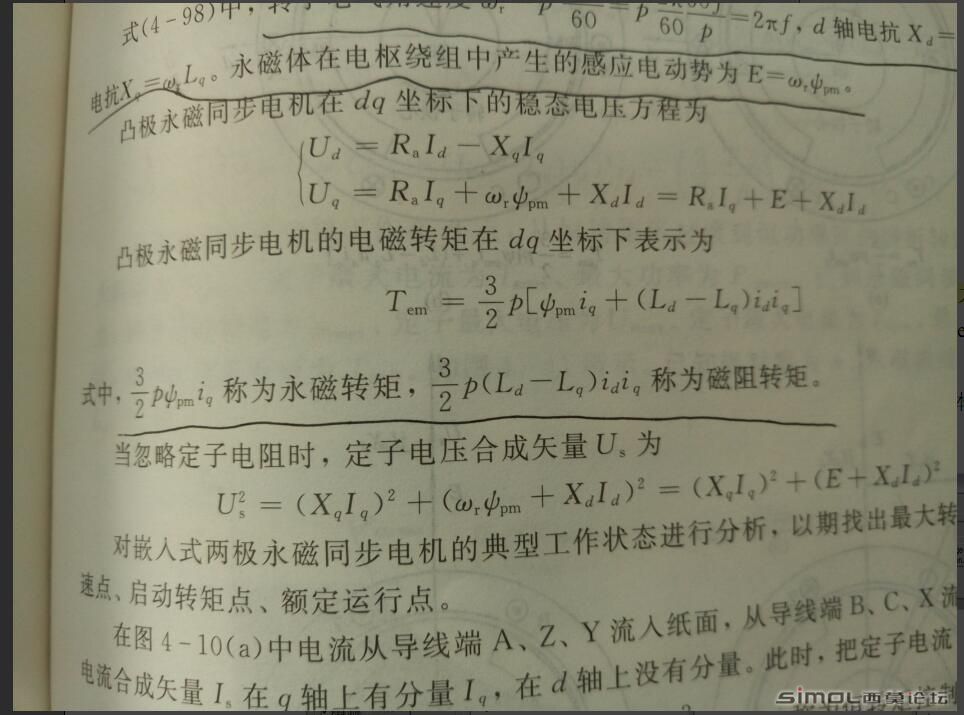 式(4-98)中, 转子电气角速度 ωr = p 60 = p 60 p = 2πf, d 轴电抗 Xd =
电抗Xq = ωrLq。永磁体在电枢绕组中产生的感应电动势为 E=ωrψpm。
凸极永磁同步电机在 dq 坐标下的稳态电压方程为
Ud = RaId − XqIq
Uq = RaIq + ωrψpm + XdId = RaIq + E + XdId
凸极永磁同步电机的电磁转矩在 dq 坐标下表示为
Tem = 3/2 p[ψpm iq + (Ld − Lq)id iq]
式中, 3/2 pψpm iq 称为永磁转矩, 3/2 p(Ld − Lq)id iq 称为磁阻转矩。
当忽略定子电阻时, 定子电压合成矢量 Us 为
Us² = (XqIq)² + (ωrψpm + XdId)² = (XqIq)² + (E + XdId)²
对嵌入式两极永磁同步电机的典型工作状态进行分析, 以期找出最大转
速点、启动转矩点、额定运行点。
在图 4-10(a)中电流从导线端 A、Z、Y 流入纸面, 从导线端 B、C、X 流
电流合成矢量 Is 在 q 轴上有分量 Iq, 在 d 轴上没有分量。此时, 把定子电流
simol西莫论坛